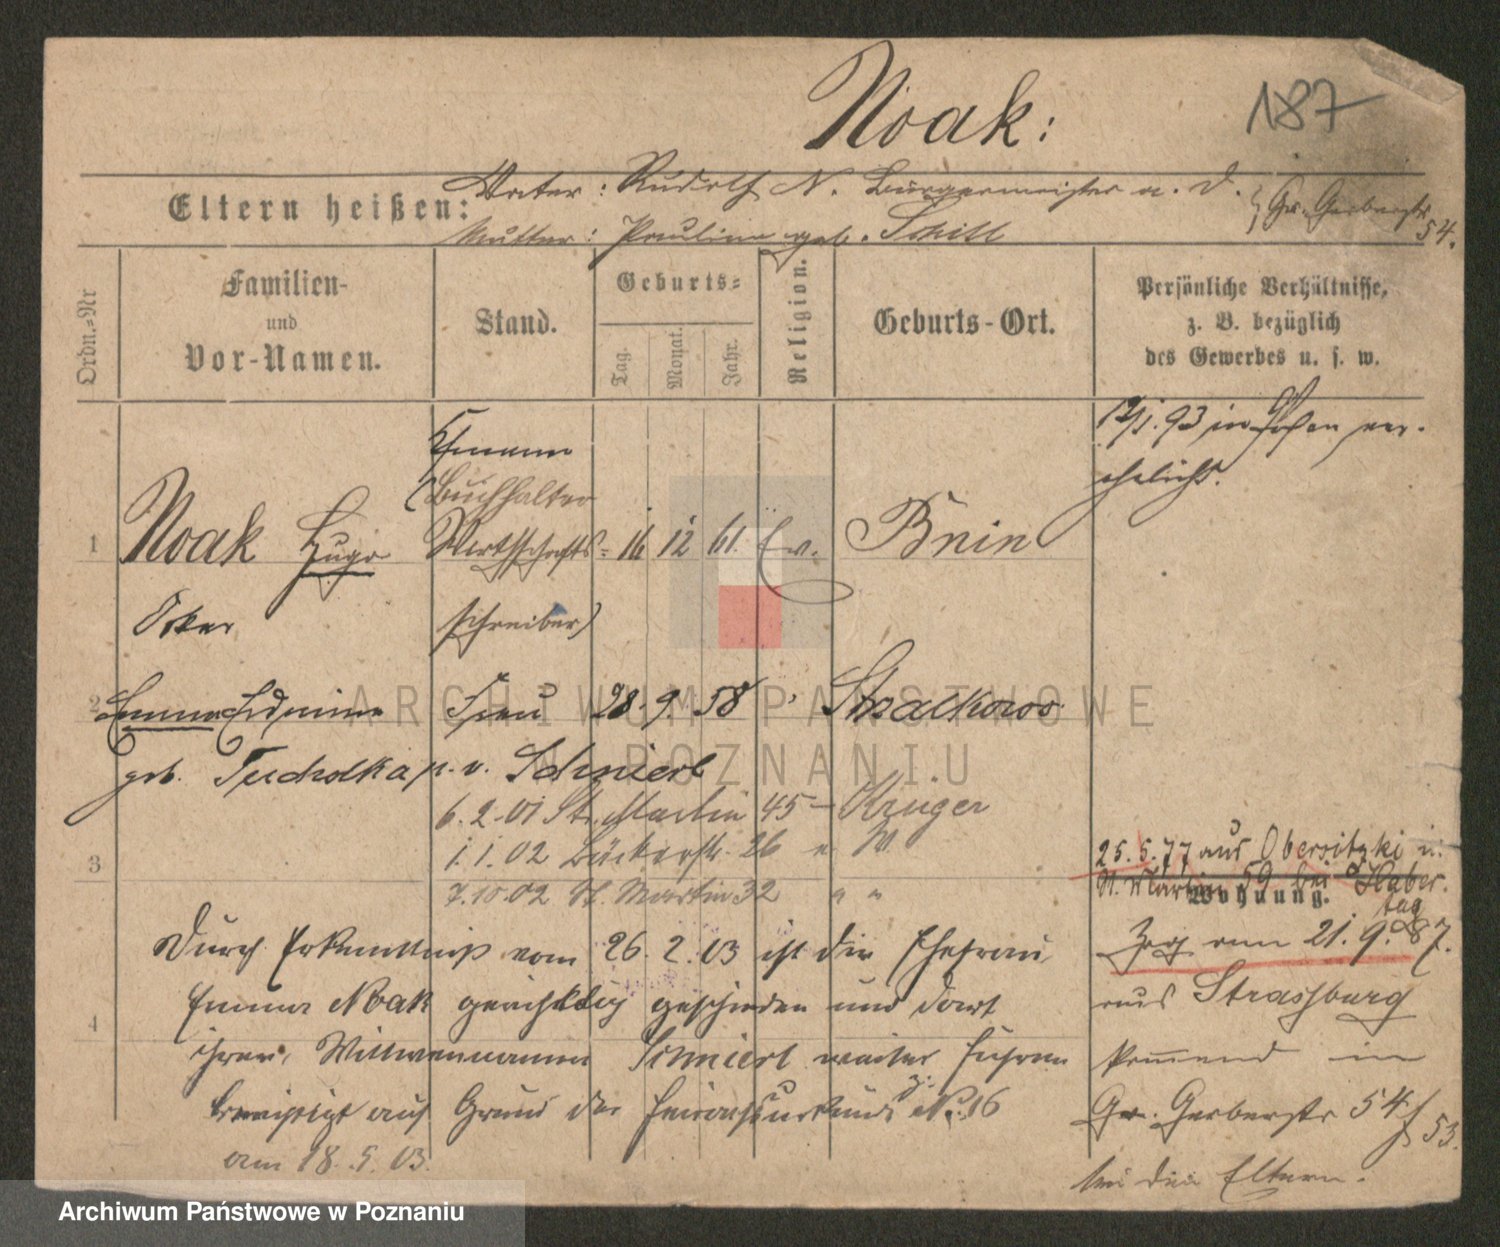 Noak:
187
Vater: Rudolf N. Bürgermeister a. D.
Gr. Gerberstr
54.
Eltern heißen:
Mutter: Pauline geb. Schill
Ordn.-Nr
Familien-
und
Vor-Namen.
Stand.
Geburts-
Tag.
Monat.
Jahr.
Religion.
Geburts-Ort.
Persönliche Verhältnisse,
z. B. bezüglich
des Gewerbes u. s. w.
12/1. 93 in Posen ver-
ehelicht.
Ehemann
(Buchhalter
1 Noak Hugo Wirthschafts- 16 12 61. Ev. Bnin
Oskar schreiber)
2 Emma Frau 28. 9. 58 Strzalkowo
geb. Tucholka Schmierl
6.2.01 St. Martin 45 - Krüger
1.1.02 Bäckerstr. 26
3
7.10.02 St. Martin 32 " "
25.5.77 aus Obersitzki
St. Martin 59 bei Haber
Wohnung.
Durch Erkenntniß vom 26. 2. 03 ist die Ehefrau
Zog am 21. 9. 87.
Emma Noak gerichtlich geschieden und darf
aus Strassburg
4
ihren Wittwennamen Schmierl weiter führen
kommend in
auf Grund der No. 16
Gr. Gerberstr 54/53.
am 18. 5. 03.
bei den Eltern.
ARCHIWUM PAŃSTWOWE
W POZNANIU
Archiwum Państwowe w Poznaniu